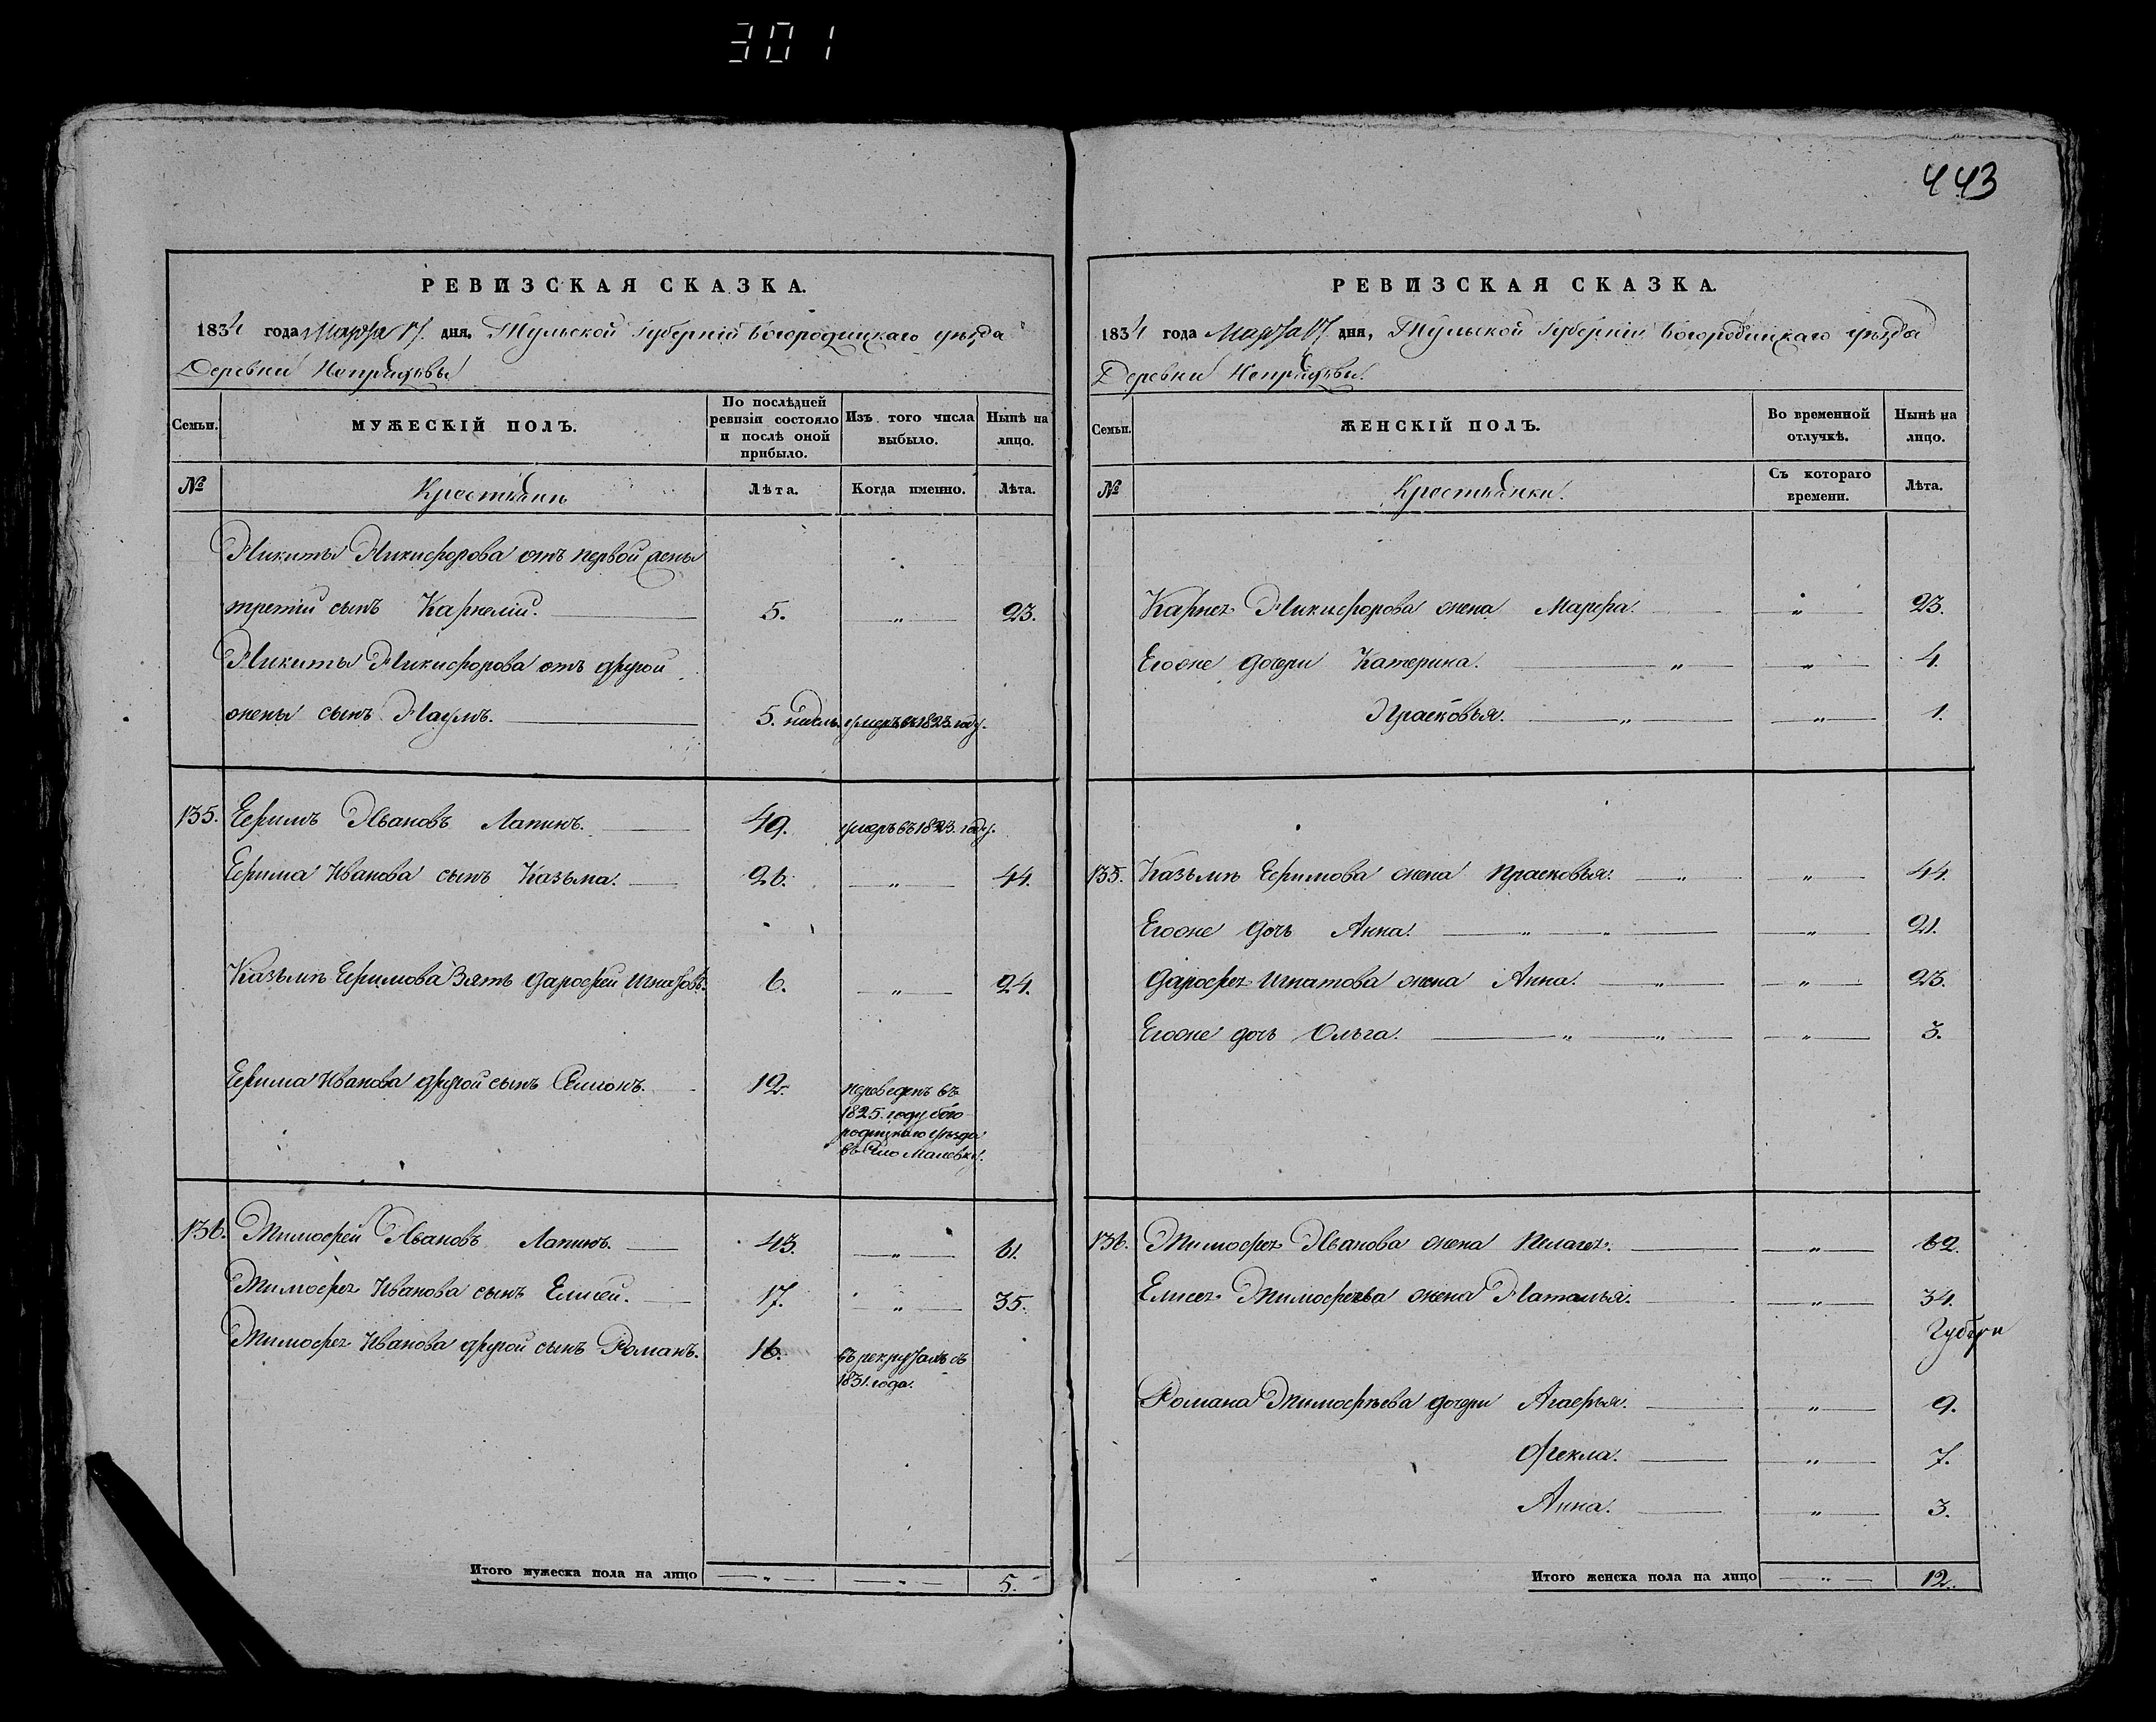 301
443
РЕВИЗСКАЯ СКАЗКА.
1834 года Марта 17. дня, Тульской Губерніи Богородицкаго уѣзда
Деревни Непрядвы
Семьи.
МУЖЕСКІЙ ПОЛЪ.
По послѣдней ревизіи состояло и послѣ оной прибыло.
Изъ того числа выбыло.
Нынѣ на лицо.
№
Крестьянъ
Лѣта.
Когда именно.
Лѣта.
Никиты Никифорова отъ первой жены
третій сынъ Карнелій. 5. „ 23.
Никиты Никифорова отъ другой
жены сынъ Наумъ. 5. недѣль умеръ въ 1823. году.
135. Ефимъ Ивановъ Лапинъ. 49. умеръ въ 1823. году.
Ефима Иванова сынъ Казьма. 26. „ 44.
Казьмы Ефимова Зять Дарофей Игнатовъ. 6. „ 24.
Ефима Иванова другой сынъ Семіонъ. 12. переведенъ въ
1825. году бого
родицкаго уѣзда
въ Село Малевку.
136. Тимофей Ивановъ Лапинъ. 43. „ 61.
Тимофея Иванова сынъ Елисей. 17. „ 35.
Тимофея Иванова другой сынъ Романъ. 16. въ рекрутахъ съ
1831. года.
Итого мужеска пола на лицо „ „ 5.
РЕВИЗСКАЯ СКАЗКА.
1834 года Марта 17. дня, Тульской Губерніи Богородицкаго уѣзда
Деревни Непрядвы.
Семьи.
ЖЕНСКІЙ ПОЛЪ.
Во временной отлучкѣ.
Нынѣ на лицо.
№
Крестьянки.
Съ котораго времени.
Лѣта.
Карнея Никифорова жена Марфа. „ 23.
Егоже дочери Катерина. „ „ 4.
Прасковья. „ „ 1.
135. Казьмы Ефимова жена Прасковья. „ „ 44.
Егоже дочь Анна. „ „ „ 21.
Дарофея Игнатова жена Анна. „ „ 23.
Егоже дочь Ольга. „ „ „ 3.
136. Тимофея Иванова жена Пелагея. „ 62.
Елисея Тимофеева жена Наталья. „ 34.
Романа Тимофѣева дочери Агафья. „ 9.
Фекла. „ 7.
Анна. „ 3.
Итого женска пола на лицо „ 12.